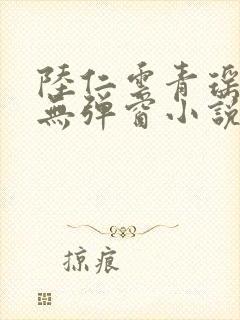 陸仁雲青瑶
無彈窗小說
掠痕